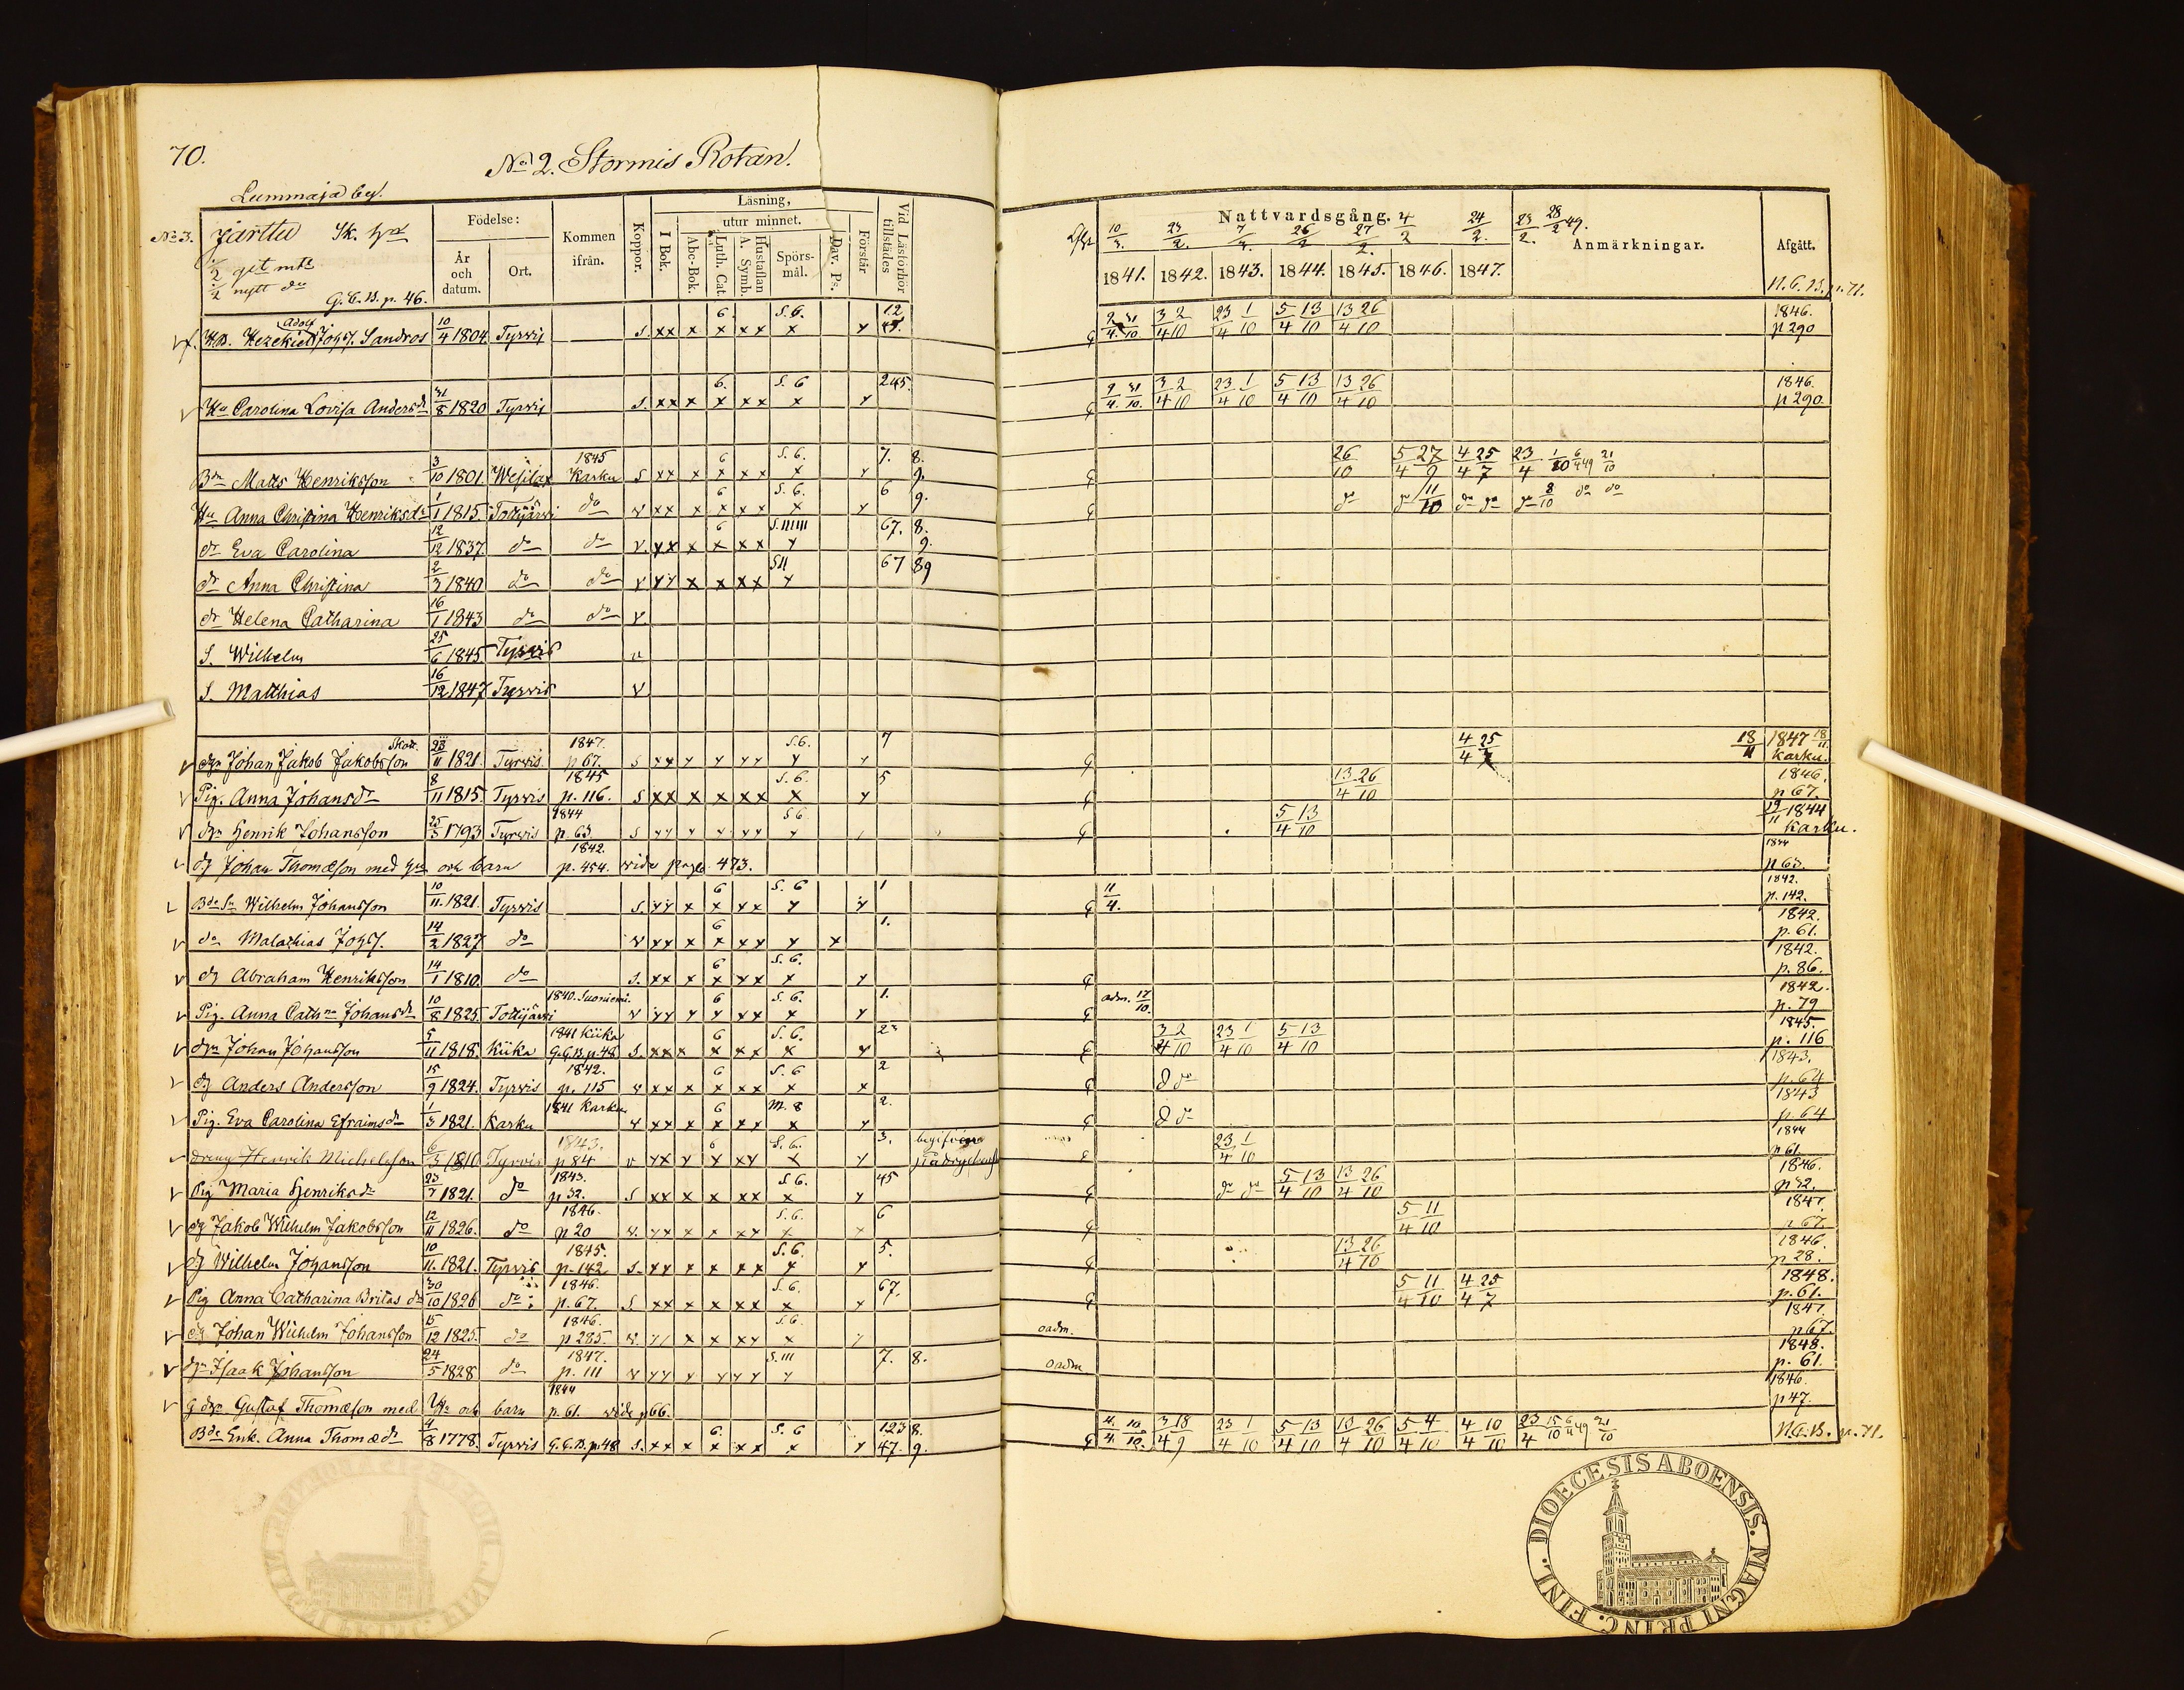 70.
No 2. Stormis Rotan.
Lummaja by.
No 3. Järttu Sk. hn
1/2 gt mtl
1/2 nytt do
G. C. B. p. 46.
Födelse:
År och datum.
Ort.
Kommen ifrån.
Koppor.
Läsning,
I Bok.
utur minnet.
Abc-Bok.
Luth. Cat.
Hustaflan A. Symb.
Spörs-mål.
Dav. Ps.
Förstår
Vid Läsförhör tillstädes
Nattvardsgång.
10/3. 23/2 7/4. 26/2 27/2. 4/2 24/2. 23/2. 28/2 49.
1841. 1842. 1843. 1844. 1845. 1846. 1847.
Anmärkningar.
Afgått.
N. C. B. p. 71.
Hb. Hezekiel Adolf Johs. Sandros 10/4 1804 Tyrvis S. xx x 6. x xx S. 6. x x 12 45. 2/4. 31/10. 3/4 2/10 23/4 1/10 5/4 13/10 13/4 26/10 1846. p 290
Hu Carolina Lovisa Andersdr 31/8 1820 Tyrvis S. xx x 6. x xx S. 6 x x 245. 2/4. 31/10. 3/4 2/10 23/4 1/10 5/4 13/10 13/4 26/10 1846. p 290.
Bdn Matts Henriksson 3/10 1801 Wesilax 1845 Karku S xx x 6 x xx S. 6. x x 7. 8. 9. 26/10 5/4 27/9 4/4 25/7 23/4 1/10 6/4 49 21/10
Hu Anna Christina Henriksdr 1/1 1815. Tottijärvi do v xx x 6 x xx S. 6. x x 6 9. do do 11/10 do do do 8/10 do do
dr Eva Carolina 12/12 1837 do do v. xx x 6 x xx S. IIIIII x 67. 8. 9.
dr Anna Christina 2/3 1840 do do v xx x x xx SII x 67 89
dr Helena Catharina 16/1 1843 do do v
S. Wilhelm 25/6 1845 Tyrvis v
S. Matthias 16/12 1847 Tyrvis v
dgn Johan Jakob Jakobsson 23/11 1821. Tyrvis 1847. p 67. S xx x x xx S. 6. x x 7 4/4 25/7 18/11 1847 18/11 Karku.
Pig. Anna Johansdr 8/11 1815. Tyrvis 1845 p. 116. S xx x x xx S. 6. x x 5 13/4 26/10 1846. p 67.
dgn Henrik Johansson 25/3 1793 Tyrvis 1844 p. 63 S xx x x xx S 6 x 5/4 13/10 19/11 1844 Karku.
dg Johan Thomæson med hu och barn 1842. p. 454. vide pagla 473. 1844 p 63.
Bde Sn Wilhelm Johansson 10/11. 1821. Tyrvis S. xx x 6 x xx S. 6 x x 1 11/4. 1842. p. 142.
do Malachias Johs. 14/2 1827 do v xx x 6 x xx x x 1. 1842. p. 61.
dg Abraham Henriksson 14/1 1810. do S. xx x 6 x xx S. 6. x x 1842. p. 86.
Pig. Anna Cathna Johansdr 10/8 1825. Tottijärvi 1840. Suoniemi. v xx x 6 x xx S. 6. x x 1. adm. 17/10. 1842. p. 79
dgn Johan Johansson 5/11 1818. Kiika 1841 Kiika G. C. B. p. 48 S. xx x 6 x xx S. 6. x x 2 3/4 2/10 23/4 1/10 5/4 13/10 1845. p. 116
dg Anders Andersson 15/9 1824. Tyrvis 1842. p. 115 v xx x 6 x xx S. 6 x x 2 do 1843. p. 64
Pig. Eva Carolina Efraimsdr 1/3 1821. Karku 1841 Karku v xx x 6 x xx M. 8 x x 2. do 1843 p. 64
dreng Henrik Michelsson 6/3 1810 Tyrvis 1843. p 84 v xx x 6 x xx S. 6. x x 3. 23/4 1/10 1844 p 61.
Pig Maria Henriksdr 23/7 1821. do 1843. p 32. S xx x x xx S 6. x x 45 do do 5/4 13/10 13/4 26/10 1846. p 32.
dg Jakob Wilhelm Jakobsson 12/11 1826. do 1846. p 20 v. xx x x xx S. 6. x x 6 5/4 11/10 1847. p 67.
dg Wilhelm Johansson 10/11. 1821. Tyrvis 1845. p. 142 S. xx x x xx S. 6. x x 5. 13/4 26/10 1846 p 28.
Pig Anna Catharina Britas dr 30/10 1826 do 1846. p. 67. S xx x x xx S. 6. x x 67. 5/4 11/10 4/4 25/7 1848. p. 61.
dg Johan Wilhelm Johansson 15/12 1825. do 1846. p 285. v. x x xx S. 6. x oadm. 1847. p 67.
dgn Isaak Johansson 24/5 1828 do 1847. p. 111 v xx x x xx S. III x 7. 8. oadm 1848. p. 61.
G dgn Gustaf Thomæson med Hu och barn 1844 p. 61. vide p 66. 1846. p 47.
Bde Enk. Anna Thomædr 4/8 1778. Tyrvis G. C. B. p. 48 S. xx x 6. x xx S. 6 x x 123 47. 8. 9. 4/4. 10/10. 3/4 18/9 23/4 1/10 5/4 13/10 13/4 26/10 5/4 4/10 4/4 10/10 23/4 15/10 6/4 49 21/10 N. C. B. p. 71.
DIOECESIS ABOENSIS. MAGNI PRINC. FINL.